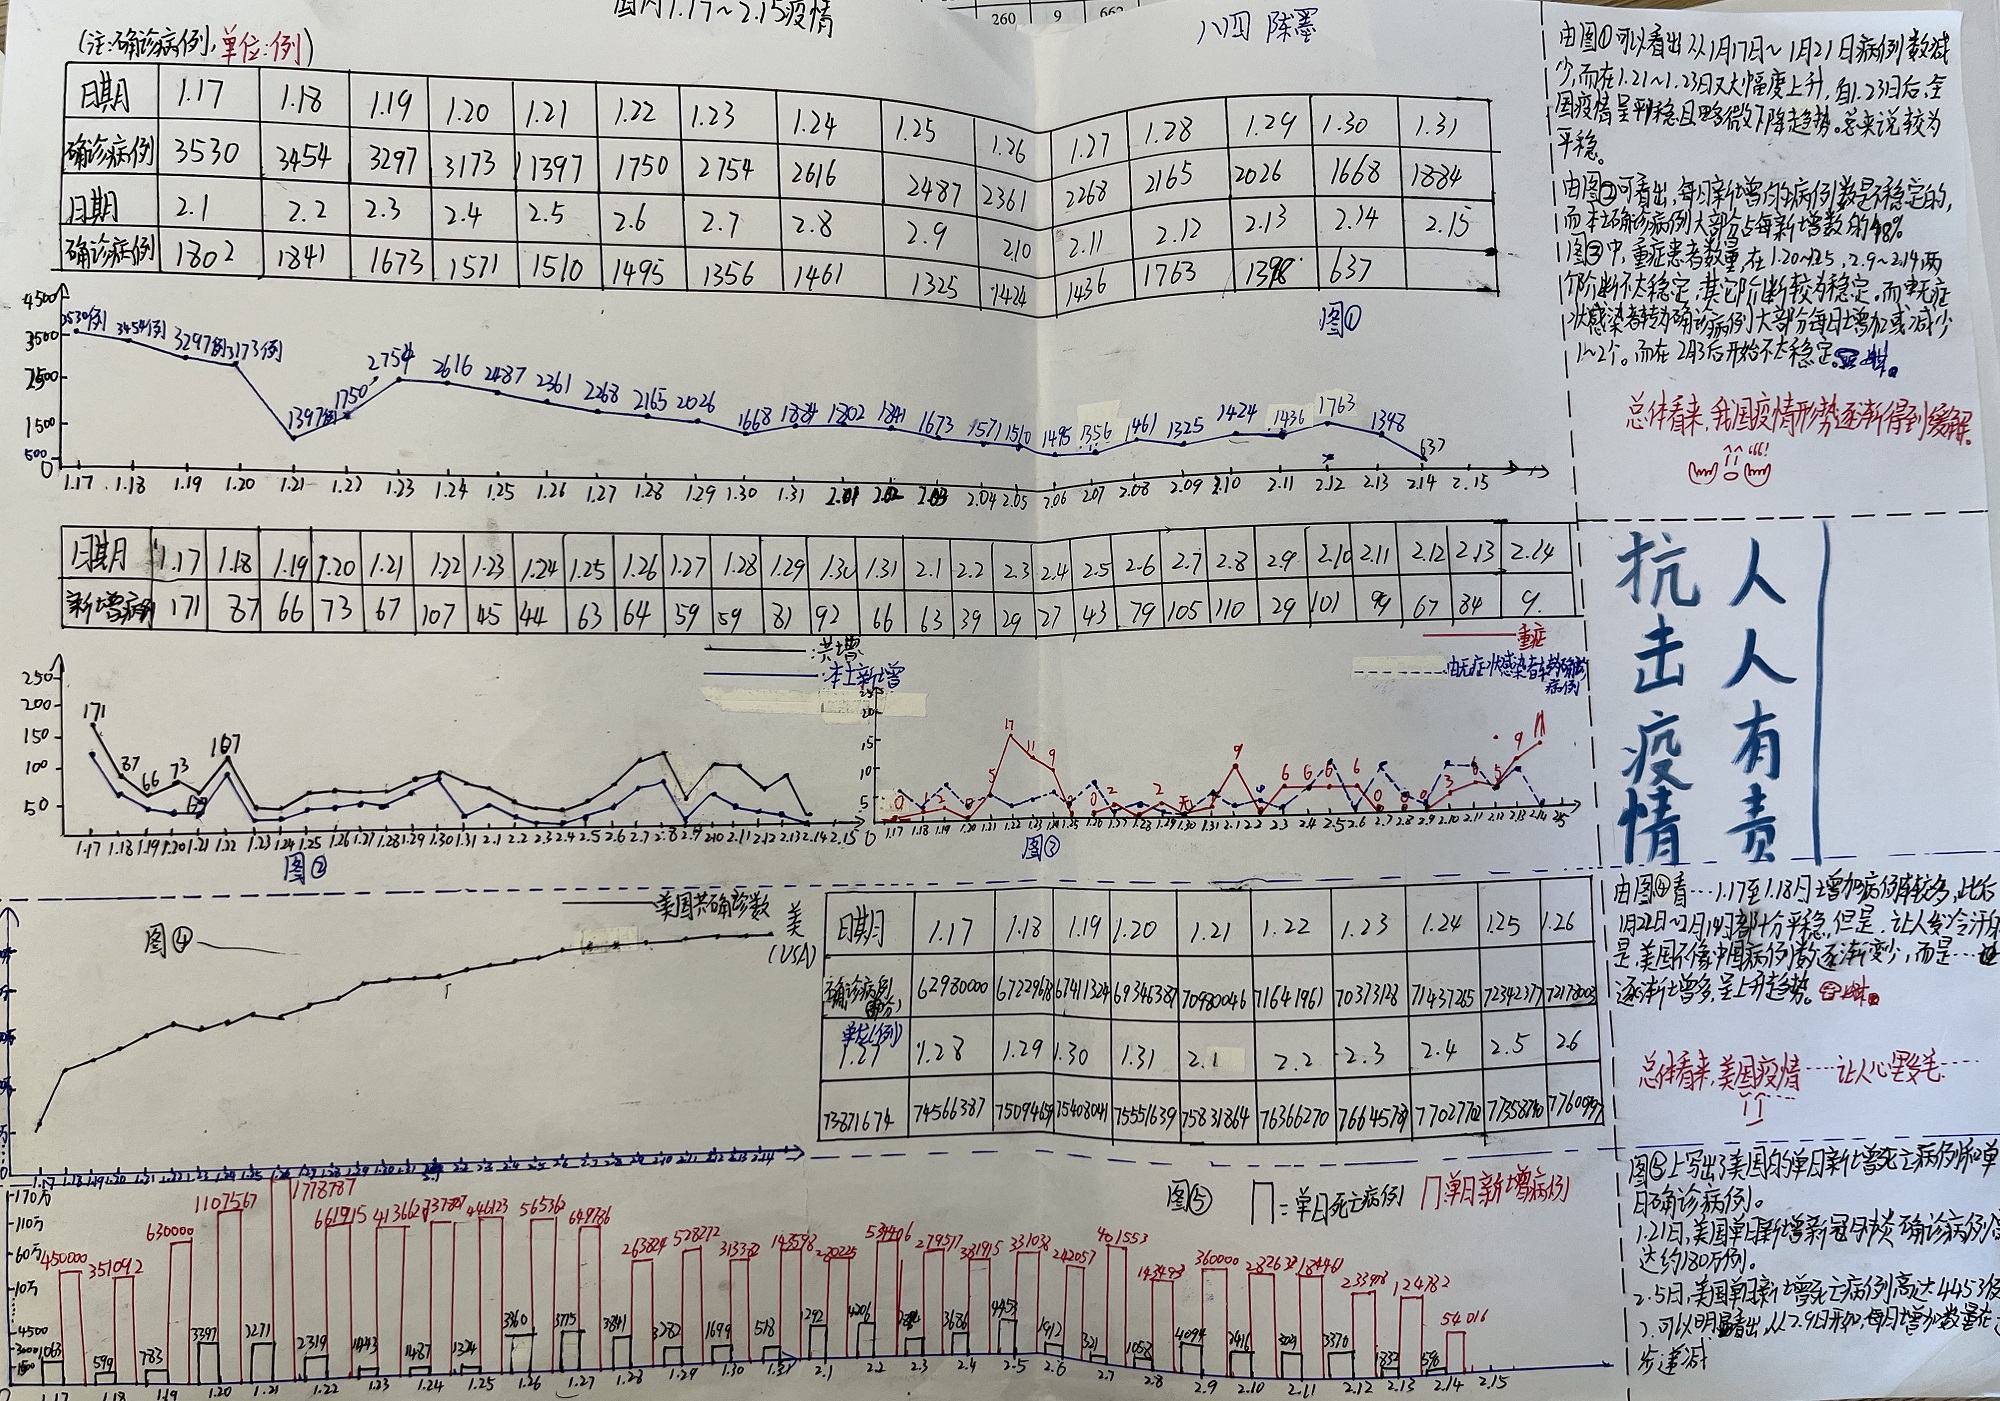 国内1.17~2.15疫情
260 9 662
八四 陈墨
(注:确诊病例,单位:例)
日期 1.17 1.18 1.19 1.20 1.21 1.22 1.23 1.24 1.25 1.26 1.27 1.28 1.29 1.30 1.31
确诊病例 3530 3454 3297 3173 1397 1750 2754 2616 2487 2361 2268 2165 2026 1668 1884
日期 2.1 2.2 2.3 2.4 2.5 2.6 2.7 2.8 2.9 2.10 2.11 2.12 2.13 2.14 2.15
确诊病例 1802 1841 1673 1571 1510 1495 1356 1461 1325 1424 1436 1763 1398 637
图①
4500
3500
2500
1500
500
0
3530例 3454例 3297例 3173例 1397例 1750 2754 2616 2487 2361 2268 2165 2026 1668 1884 1802 1841 1673 1571 1510 1495 1356 1461 1325 1424 1436 1763 1348 637
1.17 1.18 1.19 1.20 1.21 1.22 1.23 1.24 1.25 1.26 1.27 1.28 1.29 1.30 1.31 2.01 2.02 2.03 2.04 2.05 2.06 2.07 2.08 2.09 2.10 2.11 2.12 2.13 2.14 2.15
日期 1.17 1.18 1.19 1.20 1.21 1.22 1.23 1.24 1.25 1.26 1.27 1.28 1.29 1.30 1.31 2.1 2.2 2.3 2.4 2.5 2.6 2.7 2.8 2.9 2.10 2.11 2.12 2.13 2.14
新增病例 171 87 66 73 67 107 45 44 63 64 59 59 81 92 66 63 39 29 27 43 79 105 110 29 101 99 67 84 9
:共增
:本土新增
250
200
150
100
50
171 87 66 73 67 107
1.17 1.18 1.19 1.20 1.21 1.22 1.23 1.24 1.25 1.26 1.27 1.28 1.29 1.30 1.31 2.1 2.2 2.3 2.4 2.5 2.6 2.7 2.8 2.9 2.10 2.11 2.12 2.13 2.14 2.15
图②
重症
由无症状感染者转为确诊
病例
25
20
15
10
5
0
17 11 9
图③
由图①可以看出从1月17日~1月21日病例数减
少,而在1.21~1.23日又大幅度上升,自1.23日后,全
国疫情呈平稳且略微下降趋势。总来说较为
平稳。
由图②可看出,每日新增的病例数是不稳定的,
而本土确诊病例大部分占每新增数的98%
图③中,重症患者数量,在1.20~1.25,2.9~2.14两
个阶断不太稳定,其它阶断较为稳定。而由无症
状感染者转为确诊病例大部分每日增加或减少
1~2个。而在2月3后开始不太稳定。
总体看来,我国疫情形势逐渐得到缓解。
人人有责
抗击疫情
图④
美国共确诊数
美
(USA)
日期 1.17 1.18 1.19 1.20 1.21 1.22 1.23 1.24 1.25 1.26
确诊病例 62980000 67229678 67411324 69346387 70980046 71641961 70373128 71437265 72342377 72178003
单位(例)
1.27 1.28 1.29 1.30 1.31 2.1 2.2 2.3 2.4 2.5 2.6
73871674 74566387 75094659 75408041 75551639 75831864 76366270 76645789 77027702
由图④看…1.17至1.18日增加病例较多,此后
1月22日~2月14日都十分平稳,但是,让人发冷汗的
是,美国不像中国病例数逐渐变少,而是…
逐渐增多,呈上升趋势。
总体看来,美国疫情……让人心里发毛……
图⑤ =单日死亡病例 单日新增病例
170万
110万
60万
10万
4500
3000
1500
450000 351092 630000 1107567 1778787 661915 413662 446123 565362 649786 263824 528272 313382 143598 280225 534406 279517 381915 331038 242057 401553 143493 360000 282632 184461 233978 124782 54016
1063 599 783 3397 3271 2319 1443 1487 1224 3360 3775 3841 3282 1699 518 1292 4206 3686 4453 1912 321 1058 4094 2416 3029 3370 1832 598
1.17 1.18 1.19 1.20 1.21 1.22 1.23 1.24 1.25 1.26 1.27 1.28 1.29 1.30 1.31 2.1 2.2 2.3 2.4 2.5 2.6 2.7 2.8 2.9 2.10 2.11 2.12 2.13 2.14 2.15
图⑤上写出了美国的单日新增死亡病例和单
日确诊病例。
1.21日,美国单日新增新冠肺炎确诊病例高
达约180万例。
2.5日,美国单日新增死亡病例高达4453例
可以明显看出,从2.9日开始,每日增加数量在
步递减